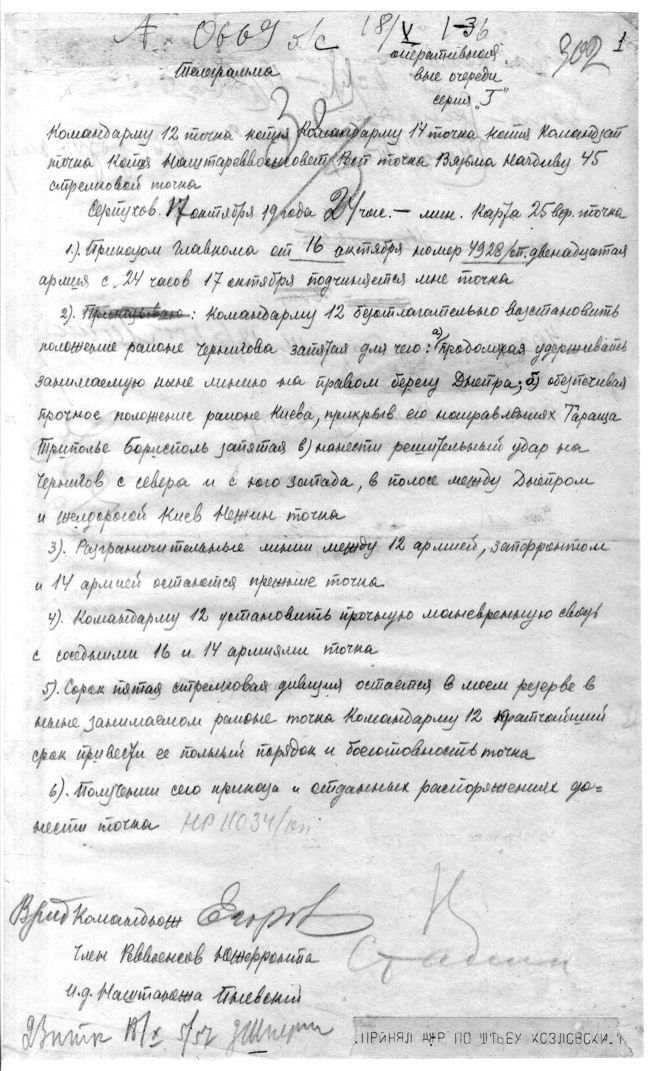 А. 0669 о/с 18/X 1-36
302 1
Телеграмма
оперативная
вне очереди
серия "Г"
Командарму 12 точка копия Командарму 14 точка копия Командзап
точка Копия Наштареввоенсовет Реп точка Вязьма Начдиву 45
стрелковой точка
Серпухов. 17 октября 19 года 24 час. — мин. Карта 25 вер. точка
1). Приказом Главкома от 16 октября номер 4928/оп. двенадцатая
армия с 24 часов 17 октября подчиняется мне точка
2). Приказываю: Командарму 12 безотлагательно возстановить
положение районе Чернигова запятая для чего: а) продолжая удерживать
занимаемую ныне линию на правом берегу Днепра; б) обезпечивая
прочное положение районе Киева, прикрыв его направлениях Тараща
Триполье Борисполь запятая в) нанести решительный удар на
Чернигов с севера и с юго запада, в полосе между Днепром
и желдорогой Киев Нежин точка
3). Разграничительные линии между 12 армией, запфронтом
и 14 армией остаются прежние точка
4). Командарму 12 установить прочную маневренную связь
с соседними 16 и 14 армиями точка
5). Сорок пятая стрелковая дивизия остается в моем резерве в
ныне занимаемом районе точка Командарму 12 кратчайший
срок привести ее полный порядок и боеготовность точка
6). Получении сего приказа и отданных распоряжениях до=
нести точка НР 11034/оп
Врид Командюж Егоров
Член Реввоенсов Южфронта Сталин
И.д. Наштаюжа Пневский
18/X
ПРИНЯЛ ДЖР ПО ШТАБУ КОЗЛОВСКИЙ